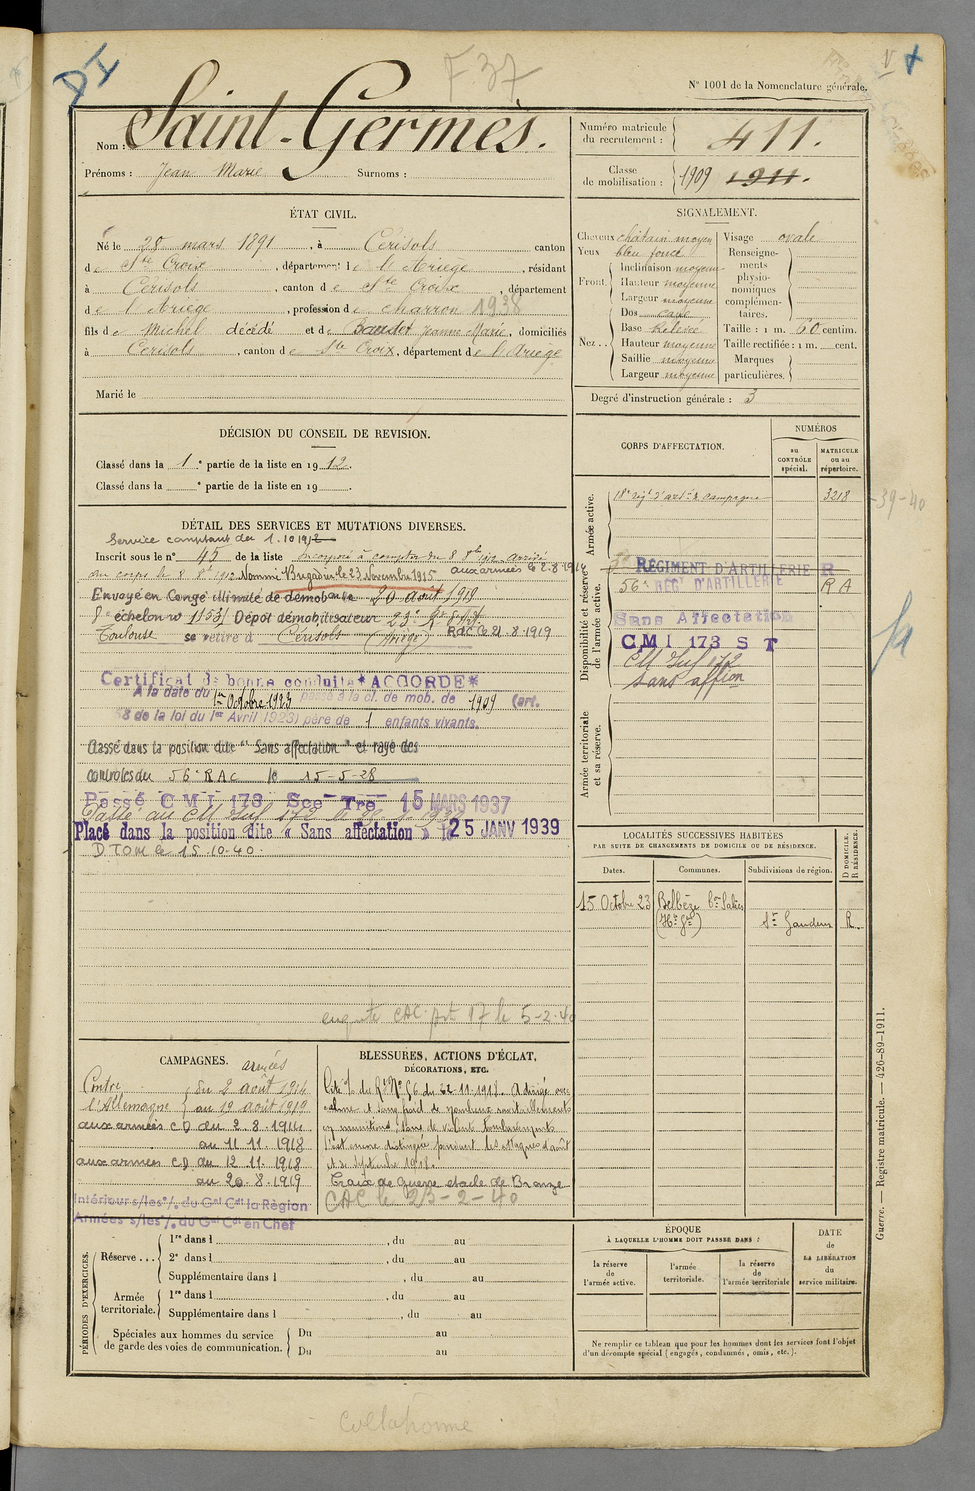 DI
F 37
V
N° 1001 de la Nomenclature générale.
Nom : Saint-Germès.
Prénoms : Jean Marie Surnoms :
Numéro matricule du recrutement : 411.
Classe de mobilisation : 1909 1911.
ÉTAT CIVIL.
Né le 28 mars 1891, à Cérisols canton
de Ste Croix, département de l'Ariège, résidant
à Cérisols, canton de Ste Croix, département
de l'Ariège, profession de charron 1938
fils de Michel décédé et de Jeanne Marie, domiciliés
à Cerisols, canton de Ste Croix, département de l'Ariège
Marié le
SIGNALEMENT.
Cheveux châtain moyen
Yeux bleu foncé
Front. Inclinaison moyenne
Hauteur moyenne
Largeur moyenne
Nez.. Dos cave
Base relevée
Hauteur moyenne
Saillie moyenne
Largeur moyenne
Visage ovale
Renseignements physionomiques complémentaires.
Taille : 1 m. 60 centim.
Taille rectifiée : 1 m. cent.
Marques particulières.
Degré d'instruction générale : 3
DÉCISION DU CONSEIL DE REVISION.
Classé dans la 1e partie de la liste en 1912.
Classé dans la e partie de la liste en 19 .
DÉTAIL DES SERVICES ET MUTATIONS DIVERSES.
Service comptant du 1.10 1912
Inscrit sous le n° 45 de la liste Incorporé à compter du 8 8bre 1912 arrivé
au corps le 8 8e 1912 Nommé Brigadier le 23 Novembre 1915 aux armées le 2-8-191
Envoyé en Congé illimité de démob 20 août 1919
échelon n° 11531 Dépôt démobilisateur 23e Rt d'Art.
Toulouse se retire à Cérisols (Ariège) RAC le 21.8.1919
Certificat de bonne conduite *ACCORDE*
A la date du 1er Octobre 1923 passé à la cl. de mob. de 1909 (art.
58 de la loi du 1er Avril 1923) père de 1 enfants vivants.
Classé dans la position dite "Sans affectation" et rayé des
controles du 56e RAC le 15-5-28
Passé CMI 173 Sce Tre 15 MARS 1937
Passé au CM Inf 172 le
Placé dans la position dite « Sans affectation » le 25 JANV 1939
D.TOM le 15.10.40.
CAC Art 17 le 5-2-40
CORPS D'AFFECTATION.
NUMÉROS
au CONTRÔLE spécial.
MATRICULE ou au répertoire.
Armée active.
18e régt d'artie de campagne 3218
Disponibilité et réserve de l'armée active.
REGIMENT D'ARTILLERIE R
56e REGt D'ARTILLERIE RA
Sans Affectation
CMI 173 ST
CM Inf 172
Sans affion
Armée territoriale et sa réserve.
-39-40
LOCALITÉS SUCCESSIVES HABITÉES
PAR SUITE DE CHANGEMENTS DE DOMICILE OU DE RÉSIDENCE.
Dates. Communes. Subdivisions de région.
D DOMICILE. R RÉSIDENCE.
15 Octobre 23 Belbèze
(Hte Gne) St Gaudens R.
CAMPAGNES.
armées
Contre du 2 août 1914
l'Allemagne au 19 août 1919
aux armées CD du 2.8.1914
au 11 11. 1918
aux armées CD du 12 11. 1918
au 20.8.1919
Intérieur s/les o/. du Gal Cdt la Région
Armées s/les o/. du Gal Cdt en Chef
BLESSURES, ACTIONS D'ÉCLAT,
DÉCORATIONS, ETC.
Cité o/. du Rt N° 56 du 22.11.1918. A dirigé avec
calme et sang froid de nombreux ravitaillements
en munitions dans de violents bombardements
S'est encore distingué pendant les attaques d'août
et de septembre 1918.
Croix de guerre étoile de Bronze
CAC le 23-2-40
PÉRIODES D'EXERCICES.
Réserve ... 1re dans l , du au
2e dans l , du au
Supplémentaire dans l , du au
Armée territoriale. 1re dans l , du au
Supplémentaire dans l , du au
Spéciales aux hommes du service de garde des voies de communication. Du au
Du au
ÉPOQUE
À LAQUELLE L'HOMME DOIT PASSER DANS :
la réserve de l'armée active.
l'armée territoriale.
la réserve de l'armée territoriale
DATE de LA LIBÉRATION du service militaire.
Ne remplir ce tableau que pour les hommes dont les services font l'objet
d'un décompte spécial (engagés, condamnés, omis, etc.).
Guerre. — Registre matricule. — 426-89-1911.